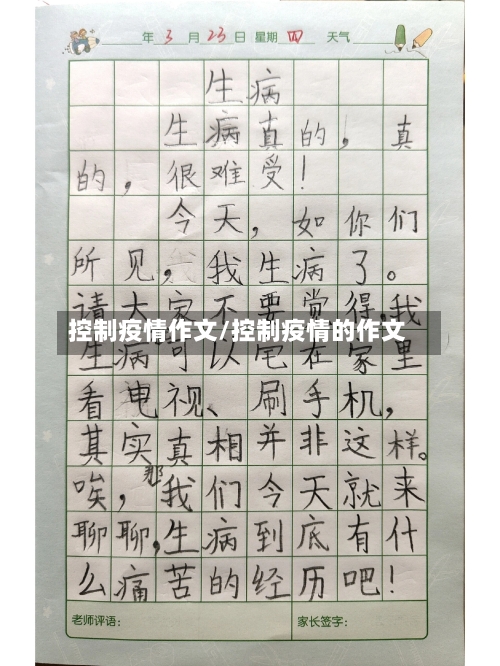 年 3 月 23 日 星期 四 天气
生病
生病真的，真
的，很难受！
今天，如你们
所见，我生病了。
请大家不要觉得，我
控制疫情作文/控制疫情的作文
生病可以宅在家里
看电视、刷手机，
其实真相并非这样。
唉，那我们今天就来
聊聊，生病到底有什
么痛苦的经历吧！
老师评语： 家长签字：